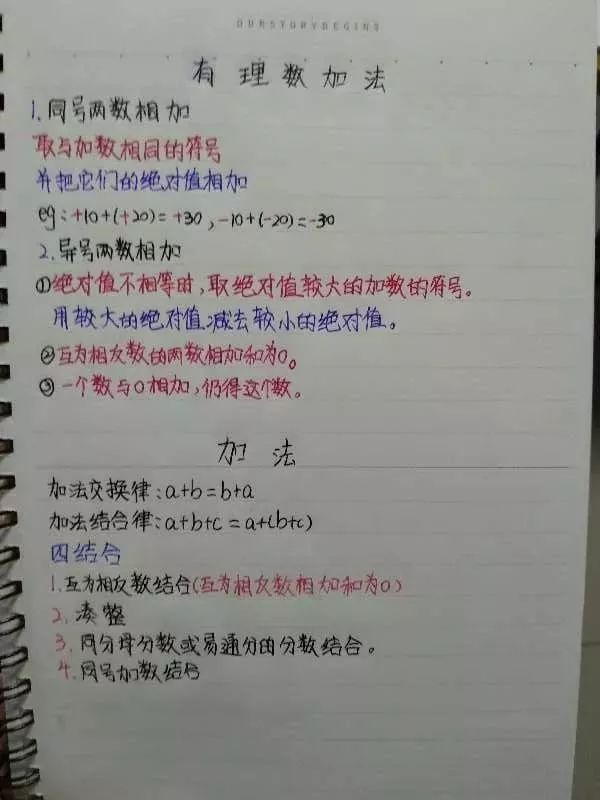 OURSTORYBEGINS
有理数加法
1.同号两数相加
取与加数相同的符号
并把它们的绝对值相加
eg:+10+(+20)=+30,-10+(-20)=-30
2.异号两数相加
①绝对值不相等时,取绝对值较大的加数的符号。
用较大的绝对值减去较小的绝对值。
②互为相反数的两数相加和为0。
③一个数与0相加,仍得这个数。
加法
加法交换律:a+b=b+a
加法结合律:a+b+c=a+(b+c)
四结合
1.互为相反数结合(互为相反数相加和为0)
2.凑整
3.同分母分数或易通分的分数结合。
4.同号加数结合